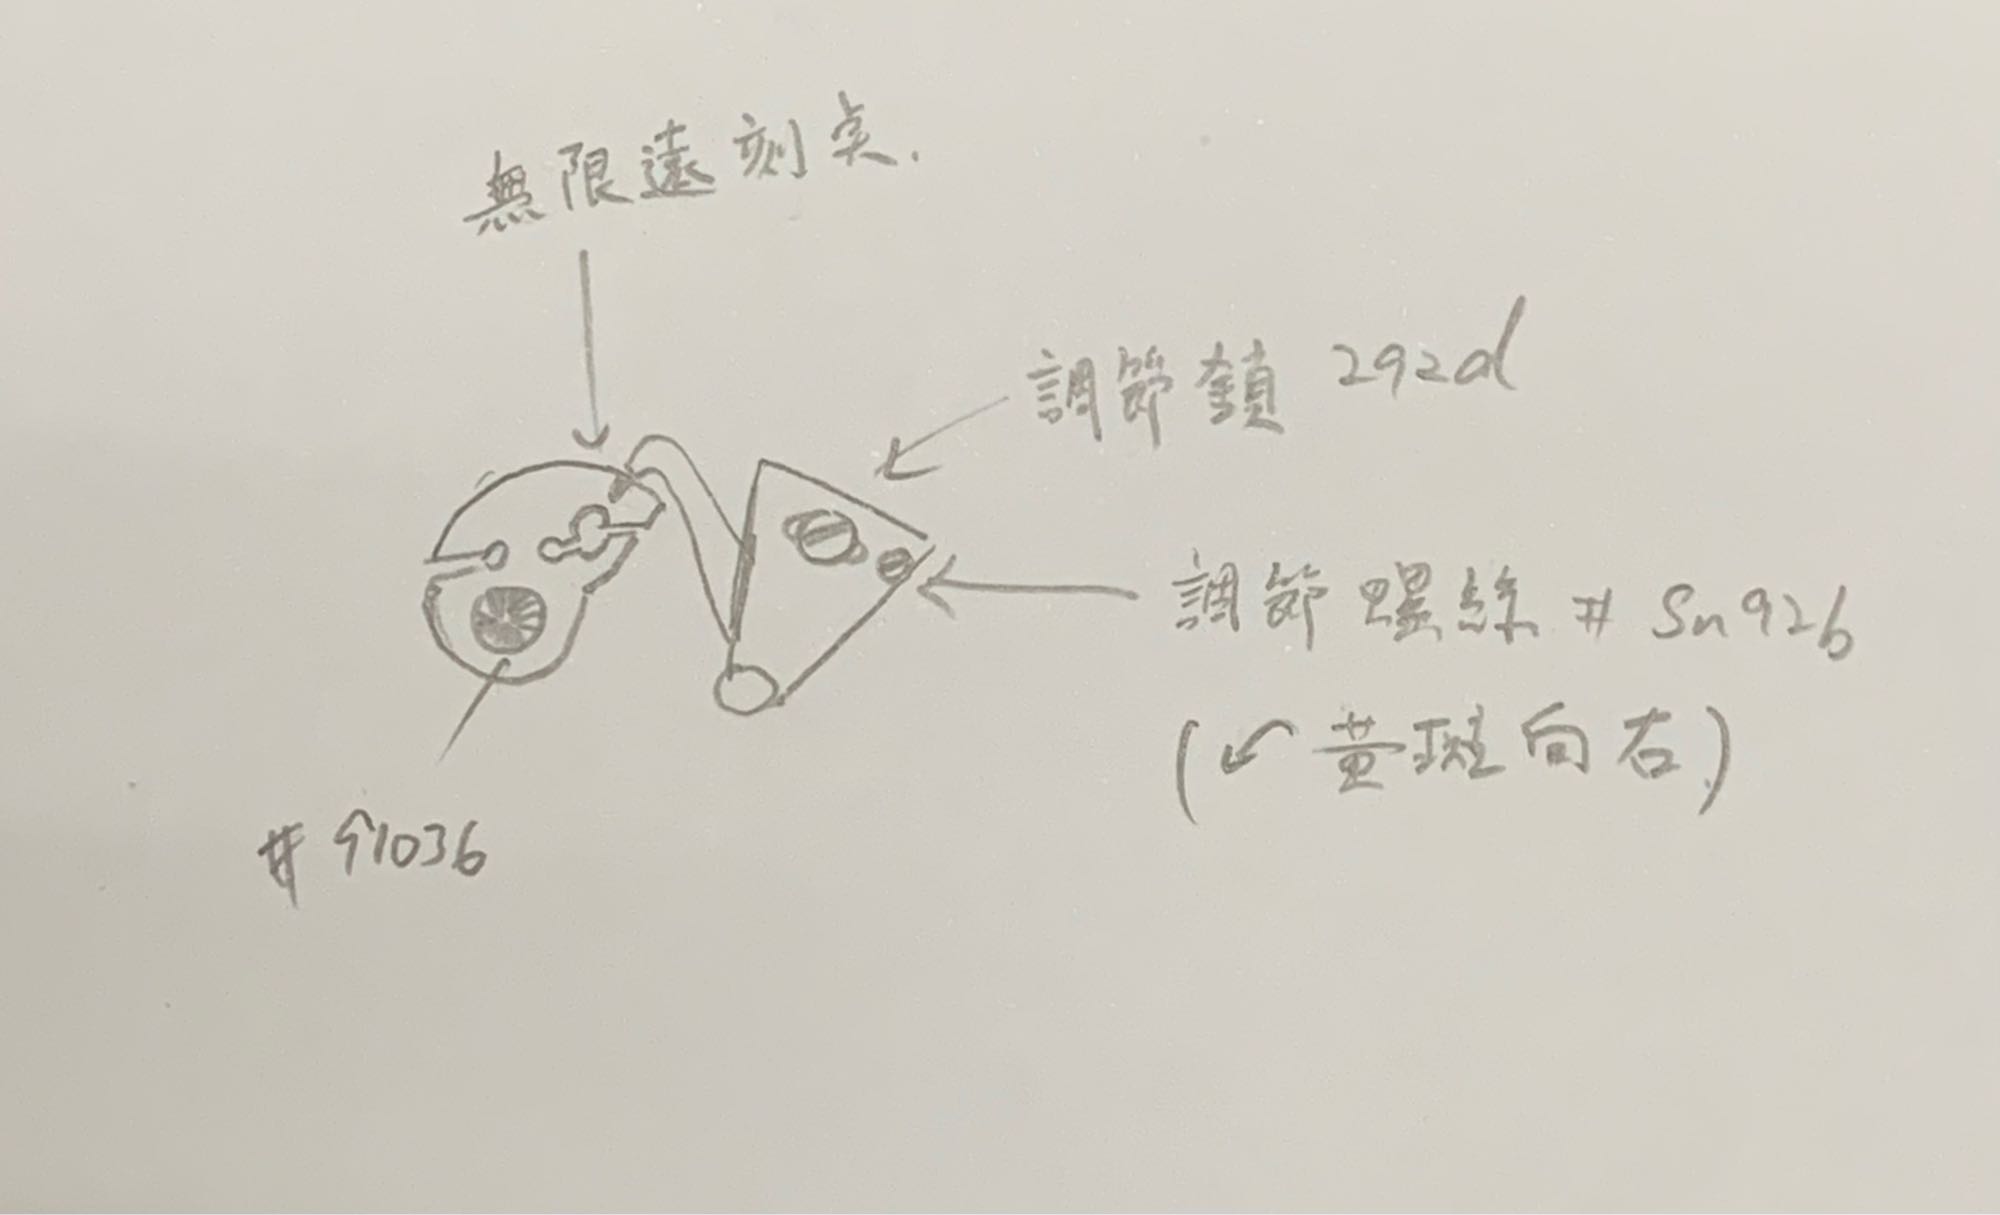 無限遠刻点.
調節鎖 292d
調節螺絲 # Sn92b
(↙ 黄斑向右)
# 91036